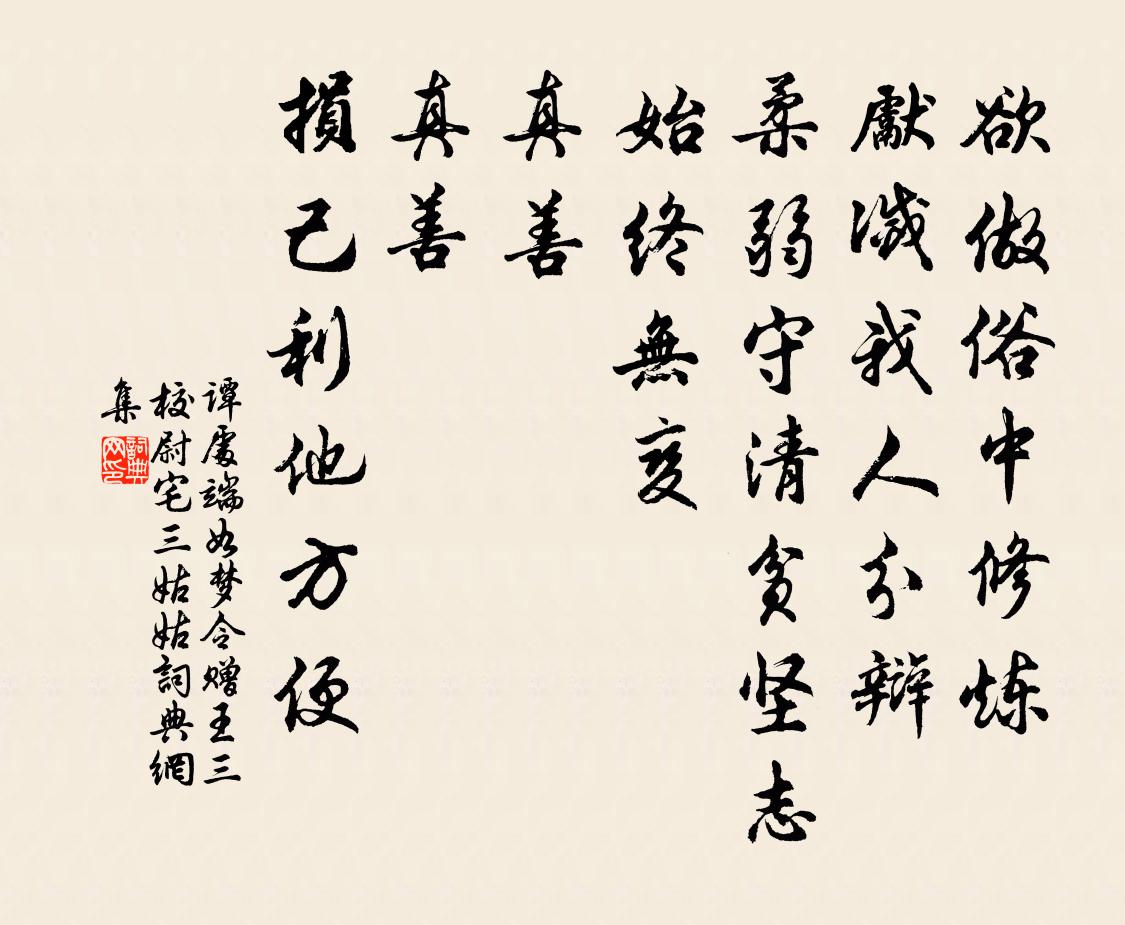 欲做俗中修炼
獻滅我人分辯
柔弱守清貧坚志
始終無变
真善
真善
損己利他方便
谭處端如梦令赠王三
校尉宅三姑姑詞典網
集
詞典网印